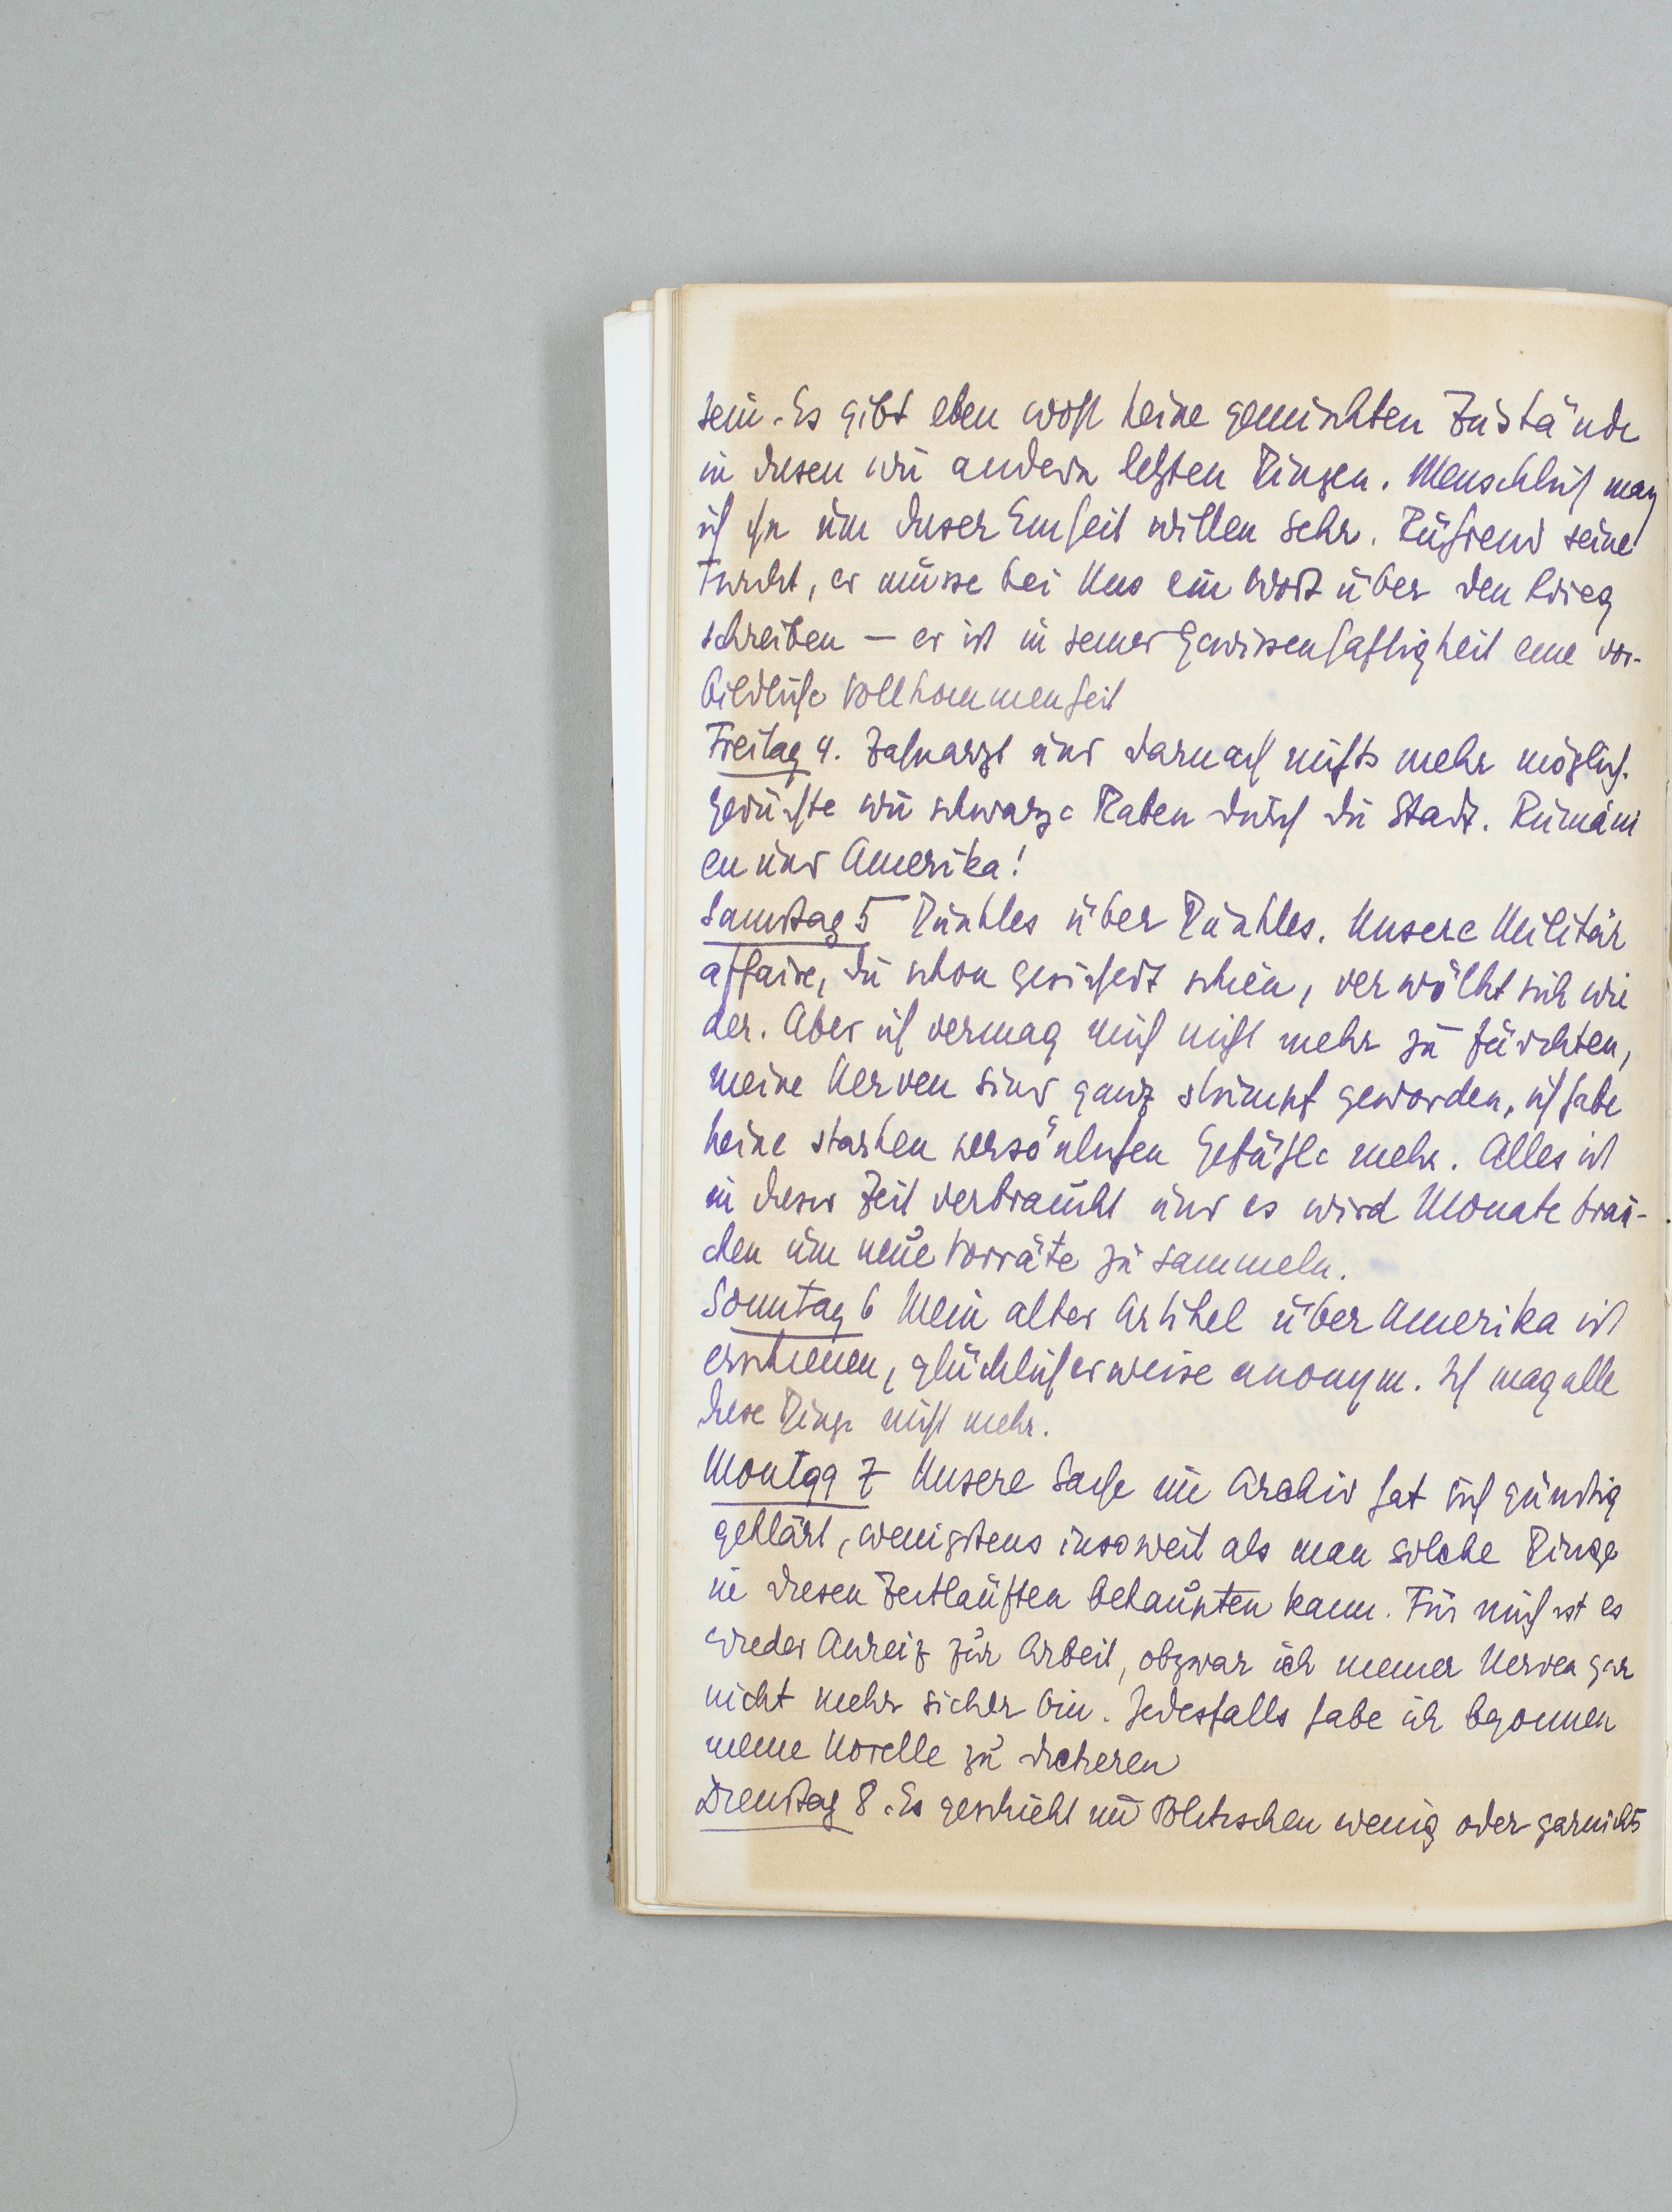 sein. Es gibt eben wohl keine gemischten Zustände
in diesen wie andern letzten Dingen. Menschlich mag
ich ihn um dieser Einheit willen sehr. Rührend seine
Furcht, er müsse bei uns ein Wort über den Krieg
schreiben – er ist in seiner Gewissenhaftigkeit eine vor-
bildliche Vollkommenheit
Freitag 4. Zahnarzt und darnach nichts mehr möglich.
Gerüchte wie schwarze Raben durch die Stadt. Rumäni
en und Amerika!
Samstag 5 Dunkles über Dunkles. Unsere Militär
affaire, die schon gesichert schien, verwölkt sich wie
der. Aber ich vermag mich nicht mehr zu fürchten,
meine Nerven sind ganz stumpf geworden, ich habe
keine starken persönlichen Gefühle mehr. Alles ist
in dieser Zeit verbraucht und es wird Monate brau-
chen um neue Vorräte zu sammeln.
Sonntag 6 Mein alter Artikel über Amerika ist
erschienen, glücklicherweise anonym. Ich mag alle
diese Dinge nicht mehr.
Montag 7 Unsere Sache im Archiv hat sich günstig
geklärt, wenigstens insoweit als man solche Dinge
in diesen Zeitläuften behaupten kann. Für mich ist es
wieder Anreiz zur Arbeit, obzwar ich meiner Nerven gar
nicht mehr sicher bin. Jedesfalls habe ich begonnen
meine Novelle zu dictieren
Dienstag 8. Es geschieht im Politischen wenig oder garnichts